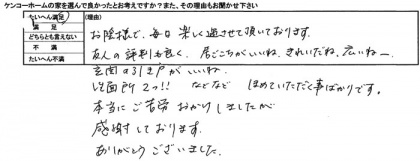 ケンコーホームの家を選んで良かったとお考えですか?また、その理由もお聞かせ下さい
たいへん満足
満足
どちらとも言えない
不満
たいへん不満
(理由)
お陰様で、毎日楽しく過させて頂いております。
友人の評判も良く、居ごこちがいいね、きれいだね、広いねー
玄関の引き戸がいいね、
洗面所2つ!! などなど ほめていただく事ばかりです。
本当にご苦労おかけしましたが
感謝しております。
ありがとうございました。